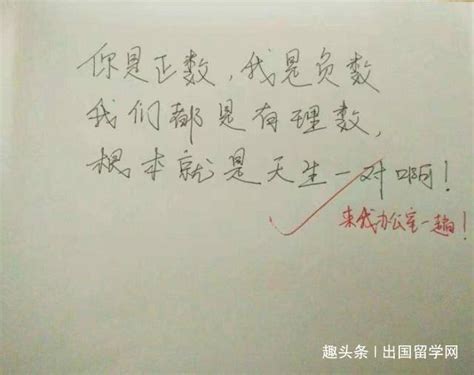 你是正数，我是负数
我们都是有理数，
根本就是天生一对啊！
来我办公室一趟！
趣头条 | 出国留学网